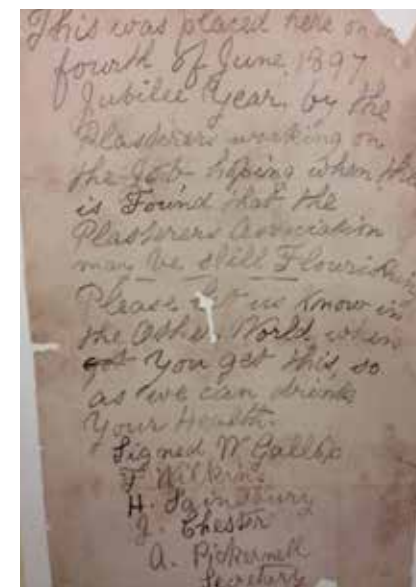 This was placed here on
fourth of June, 1897
Jubilee Year, by the
Plasterers working on
the Job hoping when this
is Found that the
Plasterers Association
may be still Flourishing.
Please let us Know in
the Other World when
got You get this, so
as we can drink
Your Health.
Signed W Gallop
F Wilkins
H. Sainsbury
J. Chester
A. Pickernell
Secretary